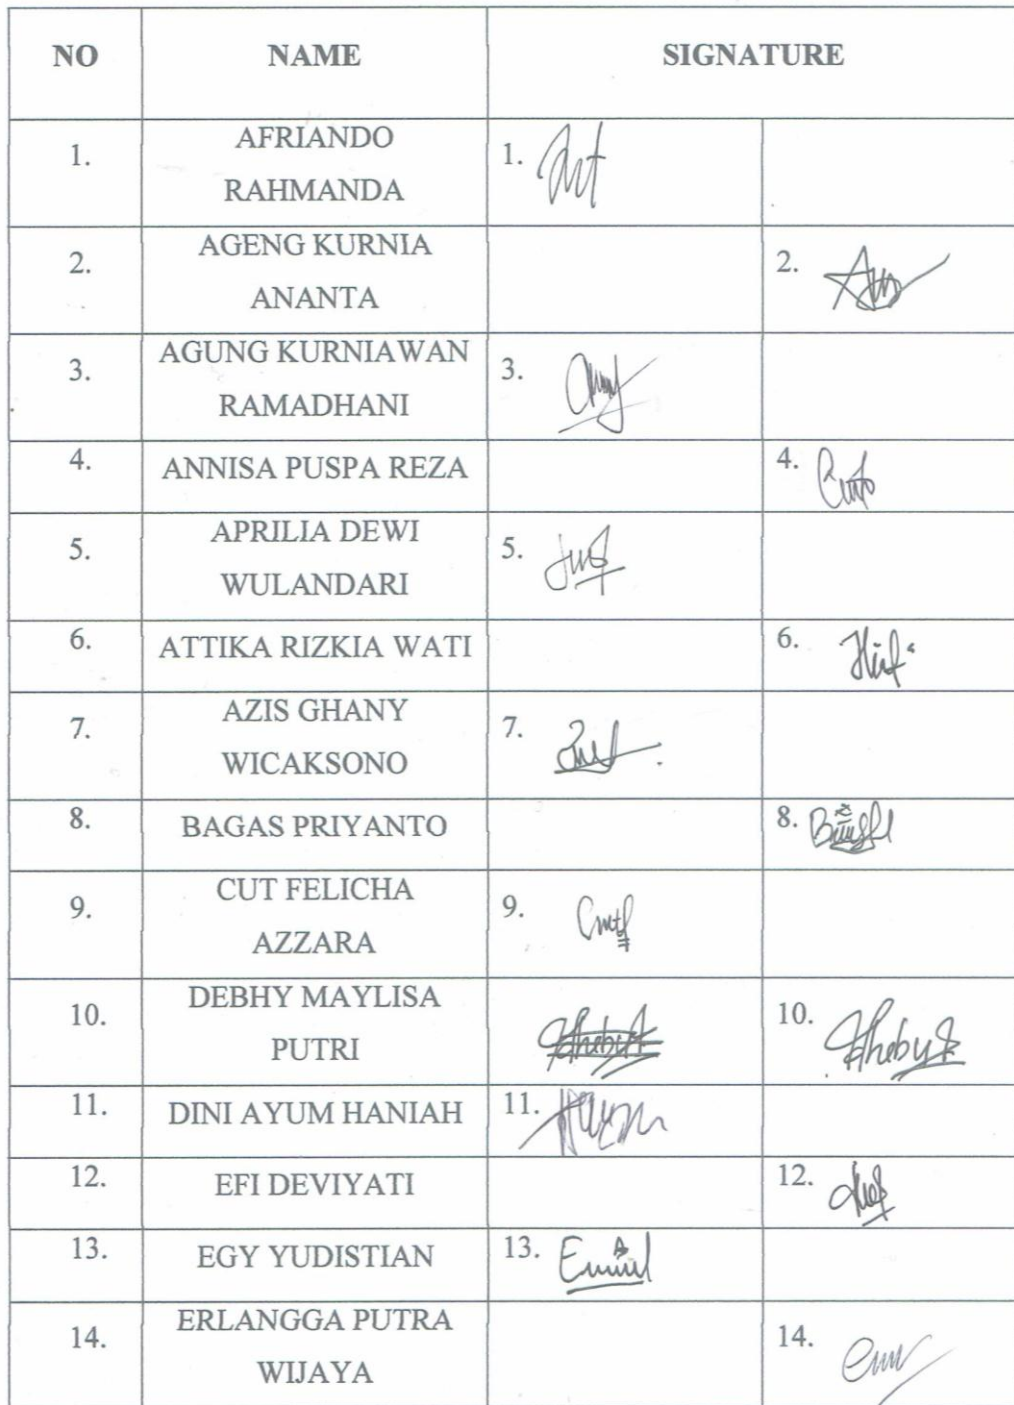 NO NAME SIGNATURE
1. AFRIANDO 1.
RAHMANDA
2. AGENG KURNIA 2.
ANANTA
3. AGUNG KURNIAWAN 3.
RAMADHANI
4. ANNISA PUSPA REZA 4.
5. APRILIA DEWI 5.
WULANDARI
6. ATTIKA RIZKIA WATI 6.
7. AZIS GHANY 7.
WICAKSONO
8. BAGAS PRIYANTO 8.
9. CUT FELICHA 9.
AZZARA
10. DEBHY MAYLISA 10.
PUTRI
11. DINI AYUM HANIAH 11.
12. EFI DEVIYATI 12.
13. EGY YUDISTIAN 13.
14. ERLANGGA PUTRA 14.
WIJAYA